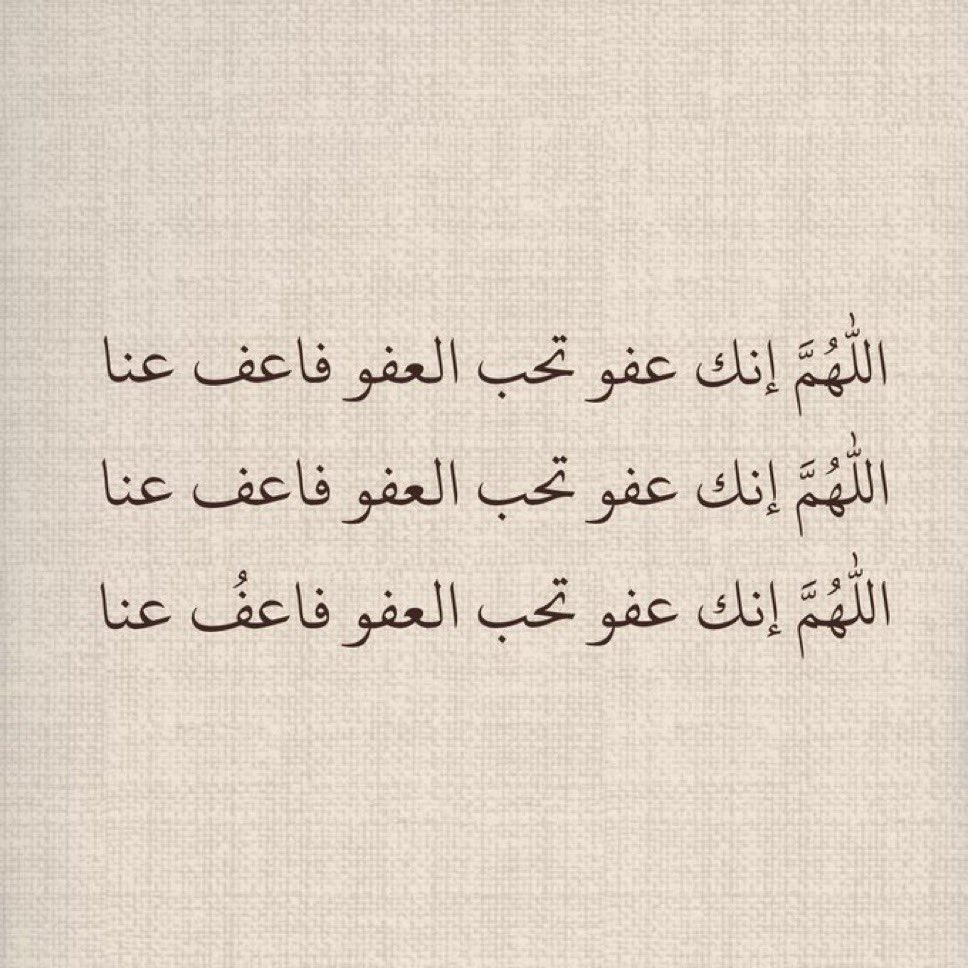 اللّٰهُمَّ إنك عفو تحب العفو فاعف عنا
اللّٰهُمَّ إنك عفو تحب العفو فاعف عنا
اللّٰهُمَّ إنك عفو تحب العفو فاعفُ عنا